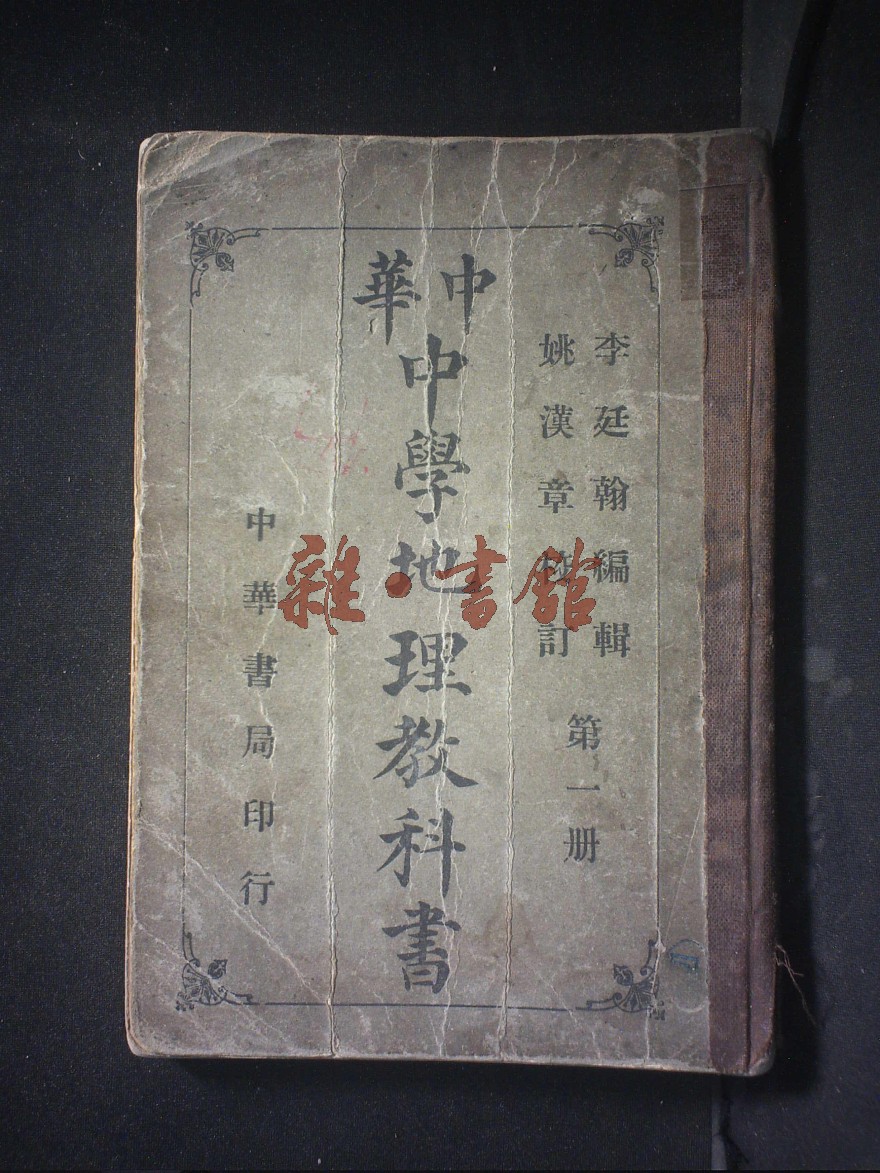 李廷翰編輯
姚漢章校訂
第一册
中華
中學地理教科書
中華書局印行
雜·書館